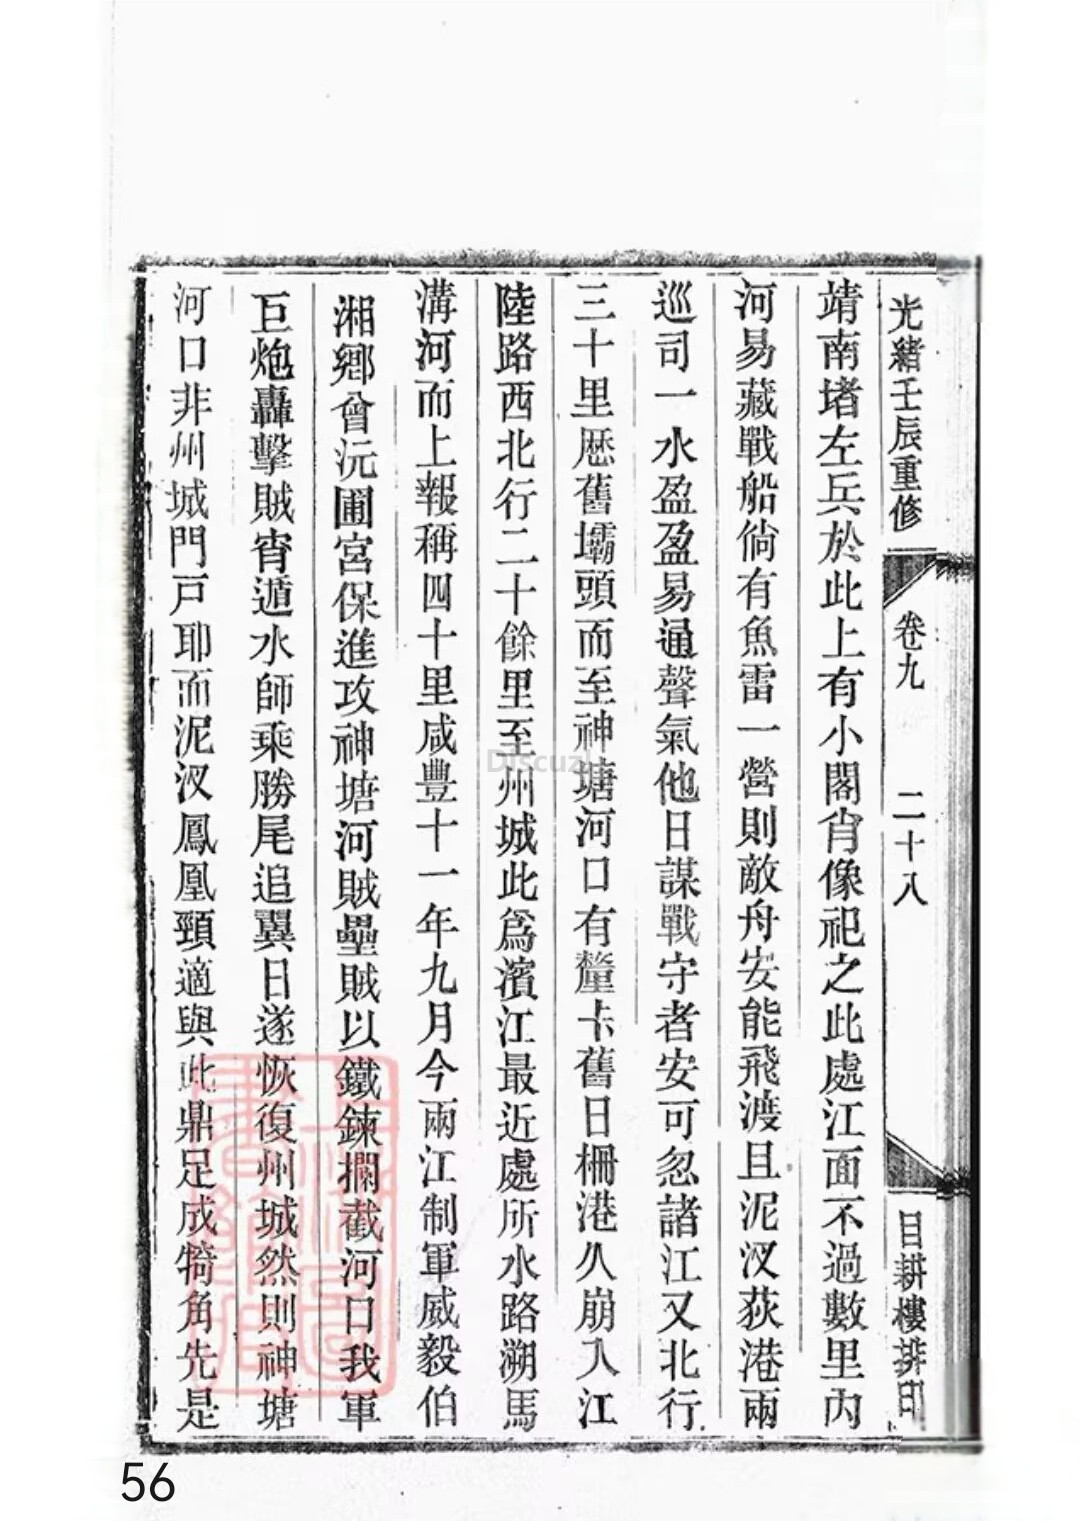 光緒壬辰重修
卷九
二十八
目耕樓排印
靖南堵左兵於此上有小閣肖像祀之此處江面不過數里內
河易藏戰船倘有魚雷一營則敵舟安能飛渡且泥汊荻港兩
巡司一水盈盈易通聲氣他日謀戰守者安可忽諸江又北行
三十里歷舊壩頭而至神塘河口有釐卡舊日柵港久崩入江
陸路西北行二十餘里至州城此爲濱江最近處所水路溯馬
溝河而上報稱四十里咸豐十一年九月今兩江制軍威毅伯
湘鄉曾沅圃宮保進攻神塘河賊壘賊以鐵鍊攔截河口我軍
巨炮轟擊賊宵遁水師乘勝尾追翼日遂恢復州城然則神塘
河口非州城門戸耶而泥汊鳳凰頸適與此鼎足成犄角先是
Discuz!
56